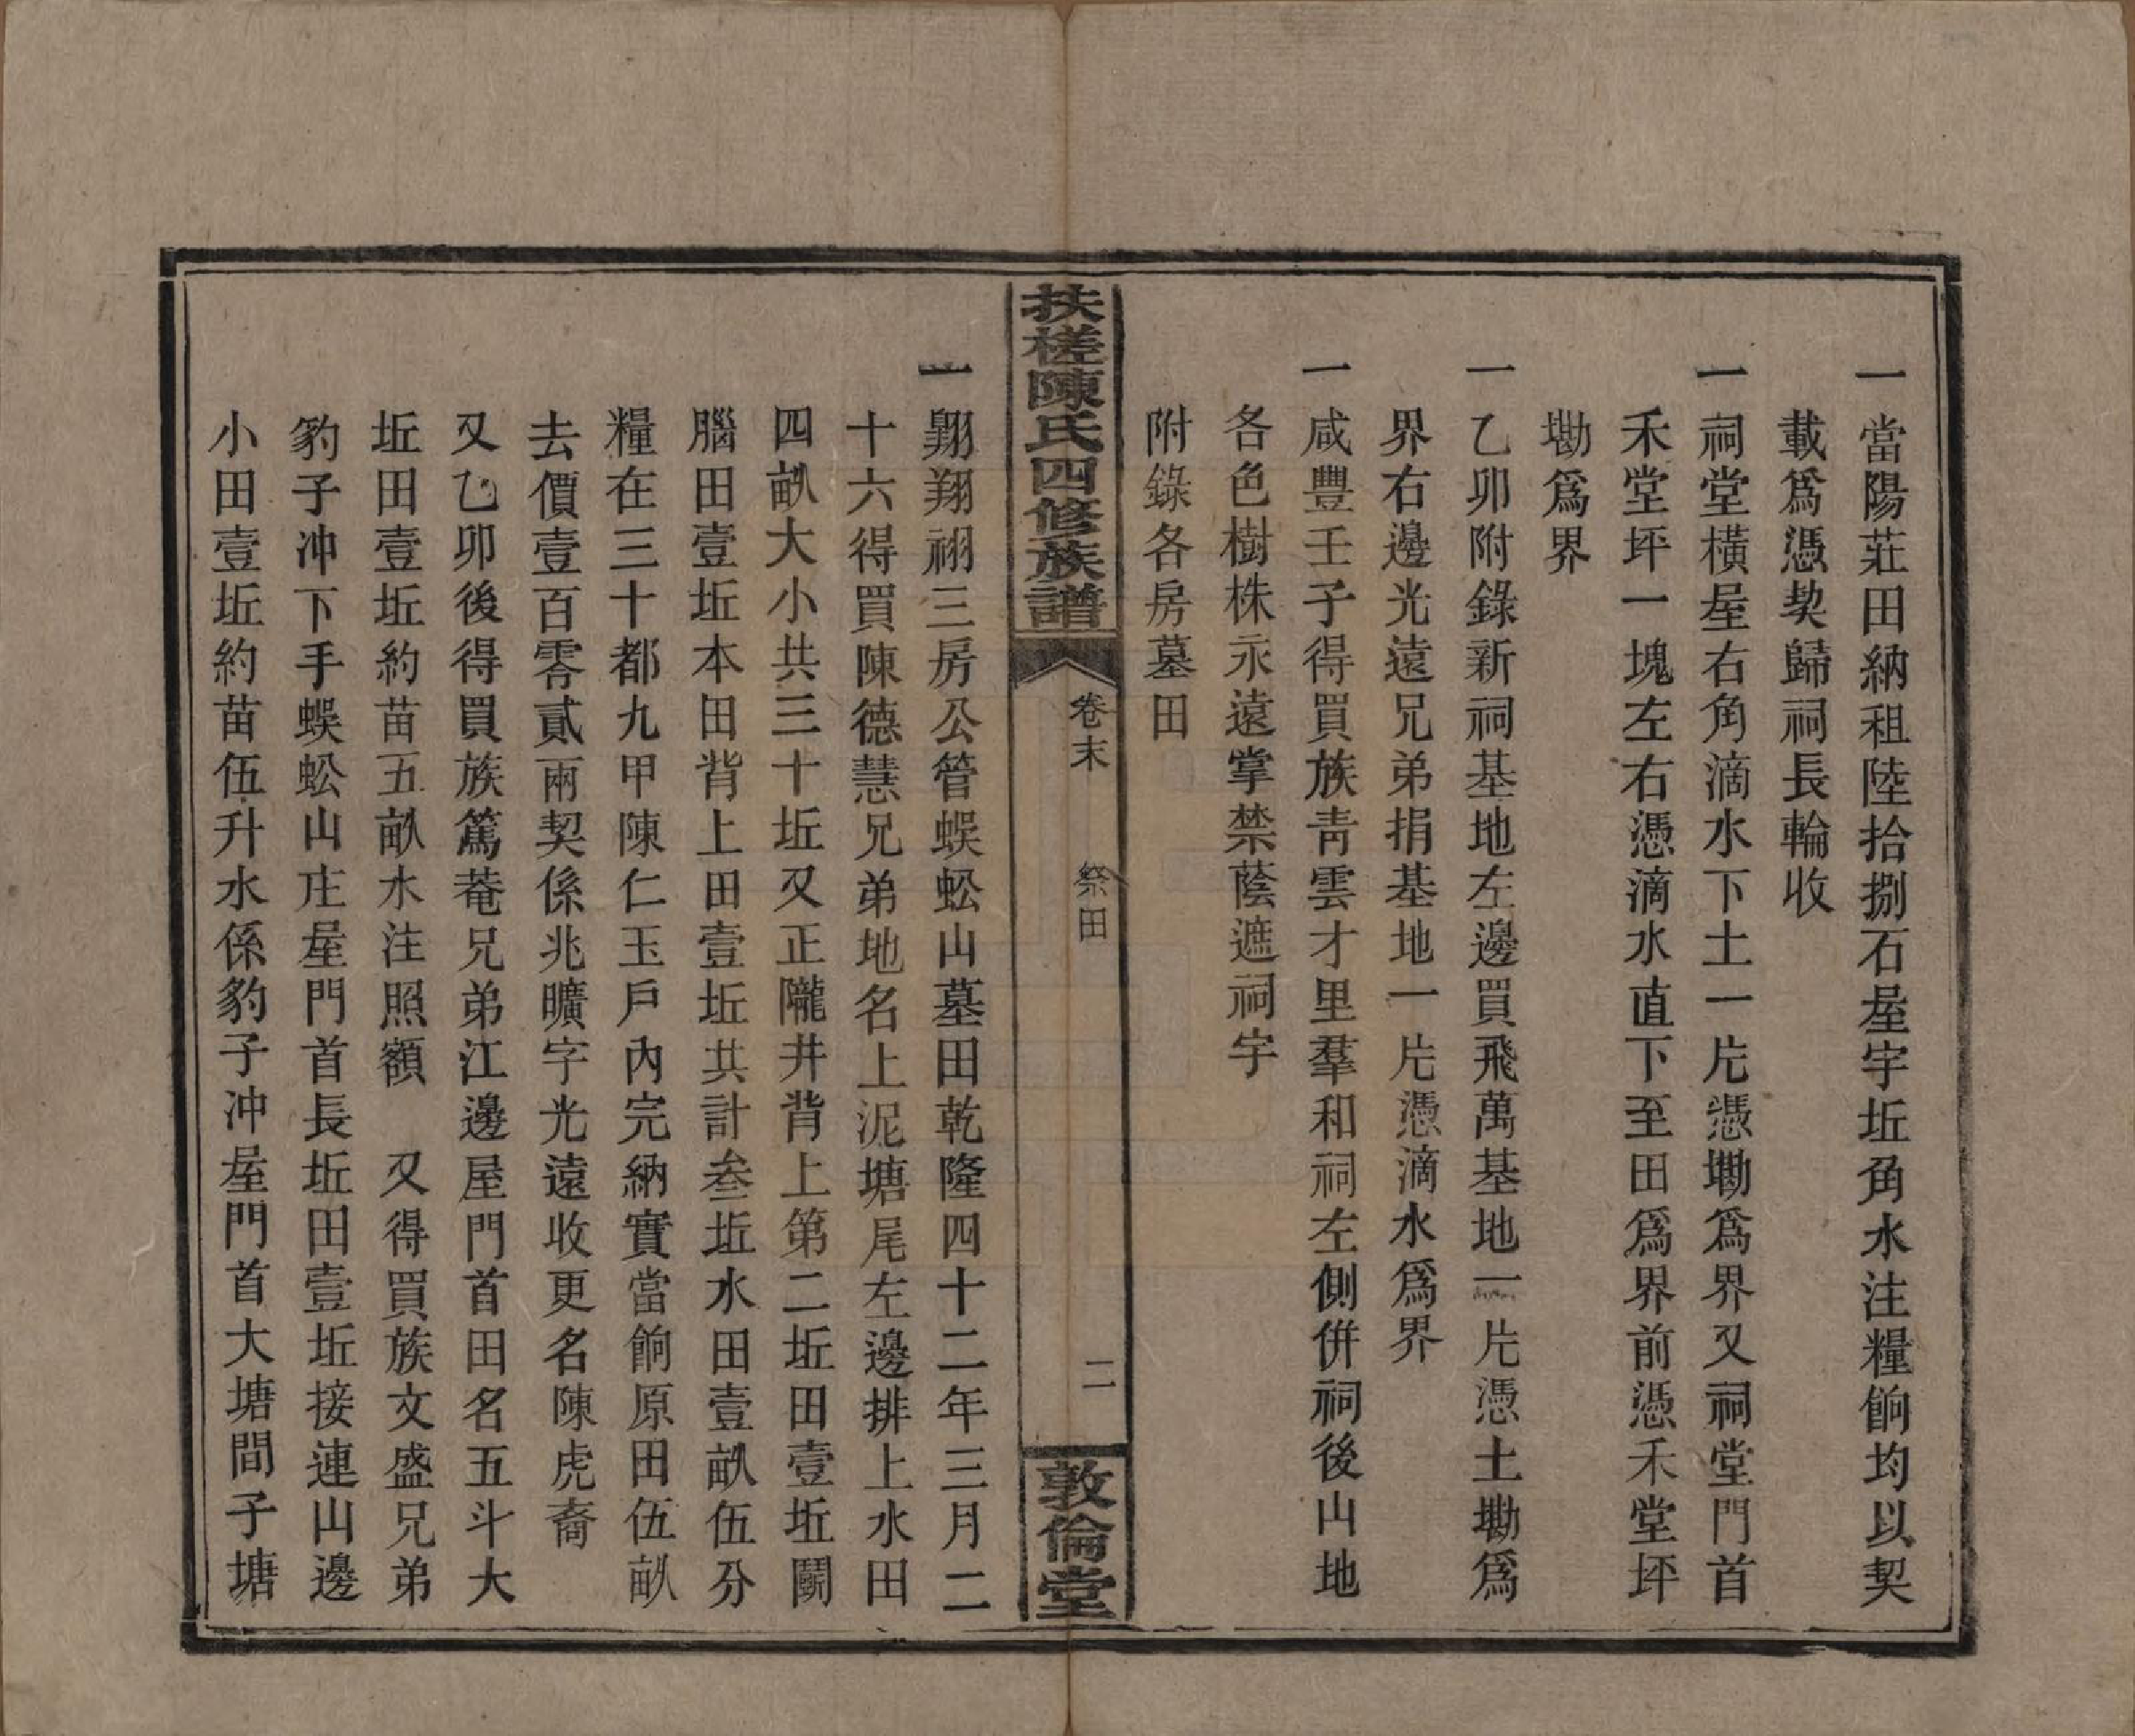 一當陽莊田納租陸拾捌石屋宇坵角水注糧餉均以契
載爲憑契歸祠長輪收
一祠堂橫屋右角滴水下土一片憑墈爲界又祠堂門首
禾堂坪一塊左右憑滴水直下至田爲界前憑禾堂坪
墈爲界
一乙卯附錄新祠基地左邊買飛萬基地一片憑土墈爲
界右邊光遠兄弟捐基地一片憑滴水爲界
一咸豐壬子得買族靑雲才里羣和祠左側併祠後山地
各色樹株永遠掌禁蔭遮祠宇
附錄各房墓田
扶槎陳氏四修族譜
卷末
祭田
二
敦倫堂
一翾翔祤三房公管蜈蚣山墓田乾隆四十二年三月二
十六得買陳德慧兄弟地名上泥塘尾左邊排上水田
四畝大小共三十坵又正隴井背上第二坵田壹坵關
腦田壹坵本田背上田壹坵共計叁坵水田壹畝伍分
糧在三十都九甲陳仁玉戶內完納實當餉原田伍畝
去價壹百零貳兩契係兆曠字光遠收更名陳虎裔
又乙卯後得買族篤菴兄弟江邊屋門首田名五斗大
坵田壹坵約苗五畝水注照額　又得買族文盛兄弟
豹子冲下手蜈蚣山庄屋門首長坵田壹坵接連山邊
小田壹坵約苗伍升水係豹子冲屋門首大塘間子塘